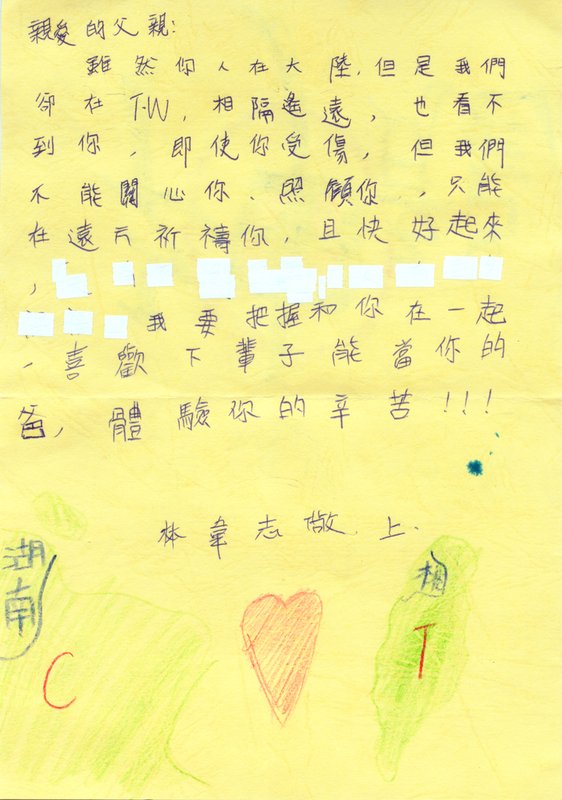 親愛的父親:
雖然你人在大陸,但是我們
卻在T.W,相隔遙遠,也看不
到你,即使你受傷,但我們
不能關心你、照顧你,只能
在遠方祈禱你,且快好起來
,
我要把握和你在一起
,喜歡下輩子能當你的
爸,體驗你的辛苦!!!
林韋志敬上.
湖南
C
T